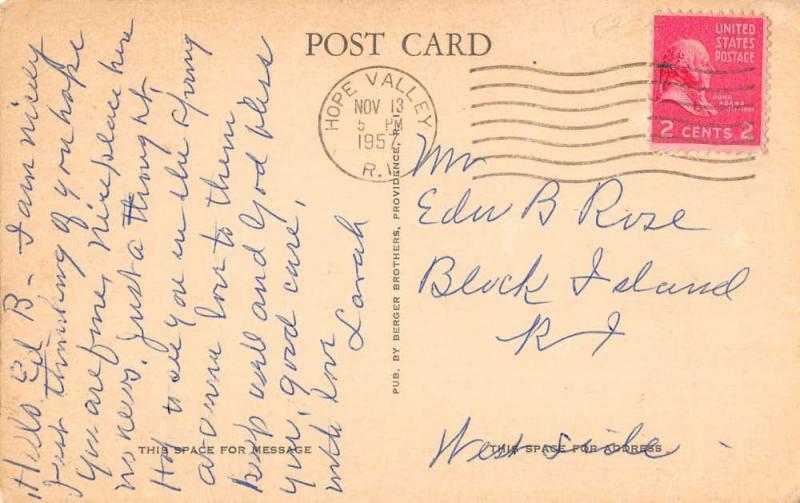 POST CARD
UNITED
STATES
POSTAGE
JOHN
ADAMS
2 CENTS 2
HOPE VALLEY
NOV 13
5 PM
1957
R.I.
Mr
Edw B Rose
Block Island
R I
West side
THIS SPACE FOR ADDRESS
THIS SPACE FOR MESSAGE
PUB. BY BERGER BROTHERS, PROVIDENCE, R. I.
Hello Ed B - I am nicely
Just thinking of you hope
you are fine, Nice place here
no news. Just a thought
Hop to see you in the Spring
love to them
keep well and God bless
you, good care,
with love
Sarah